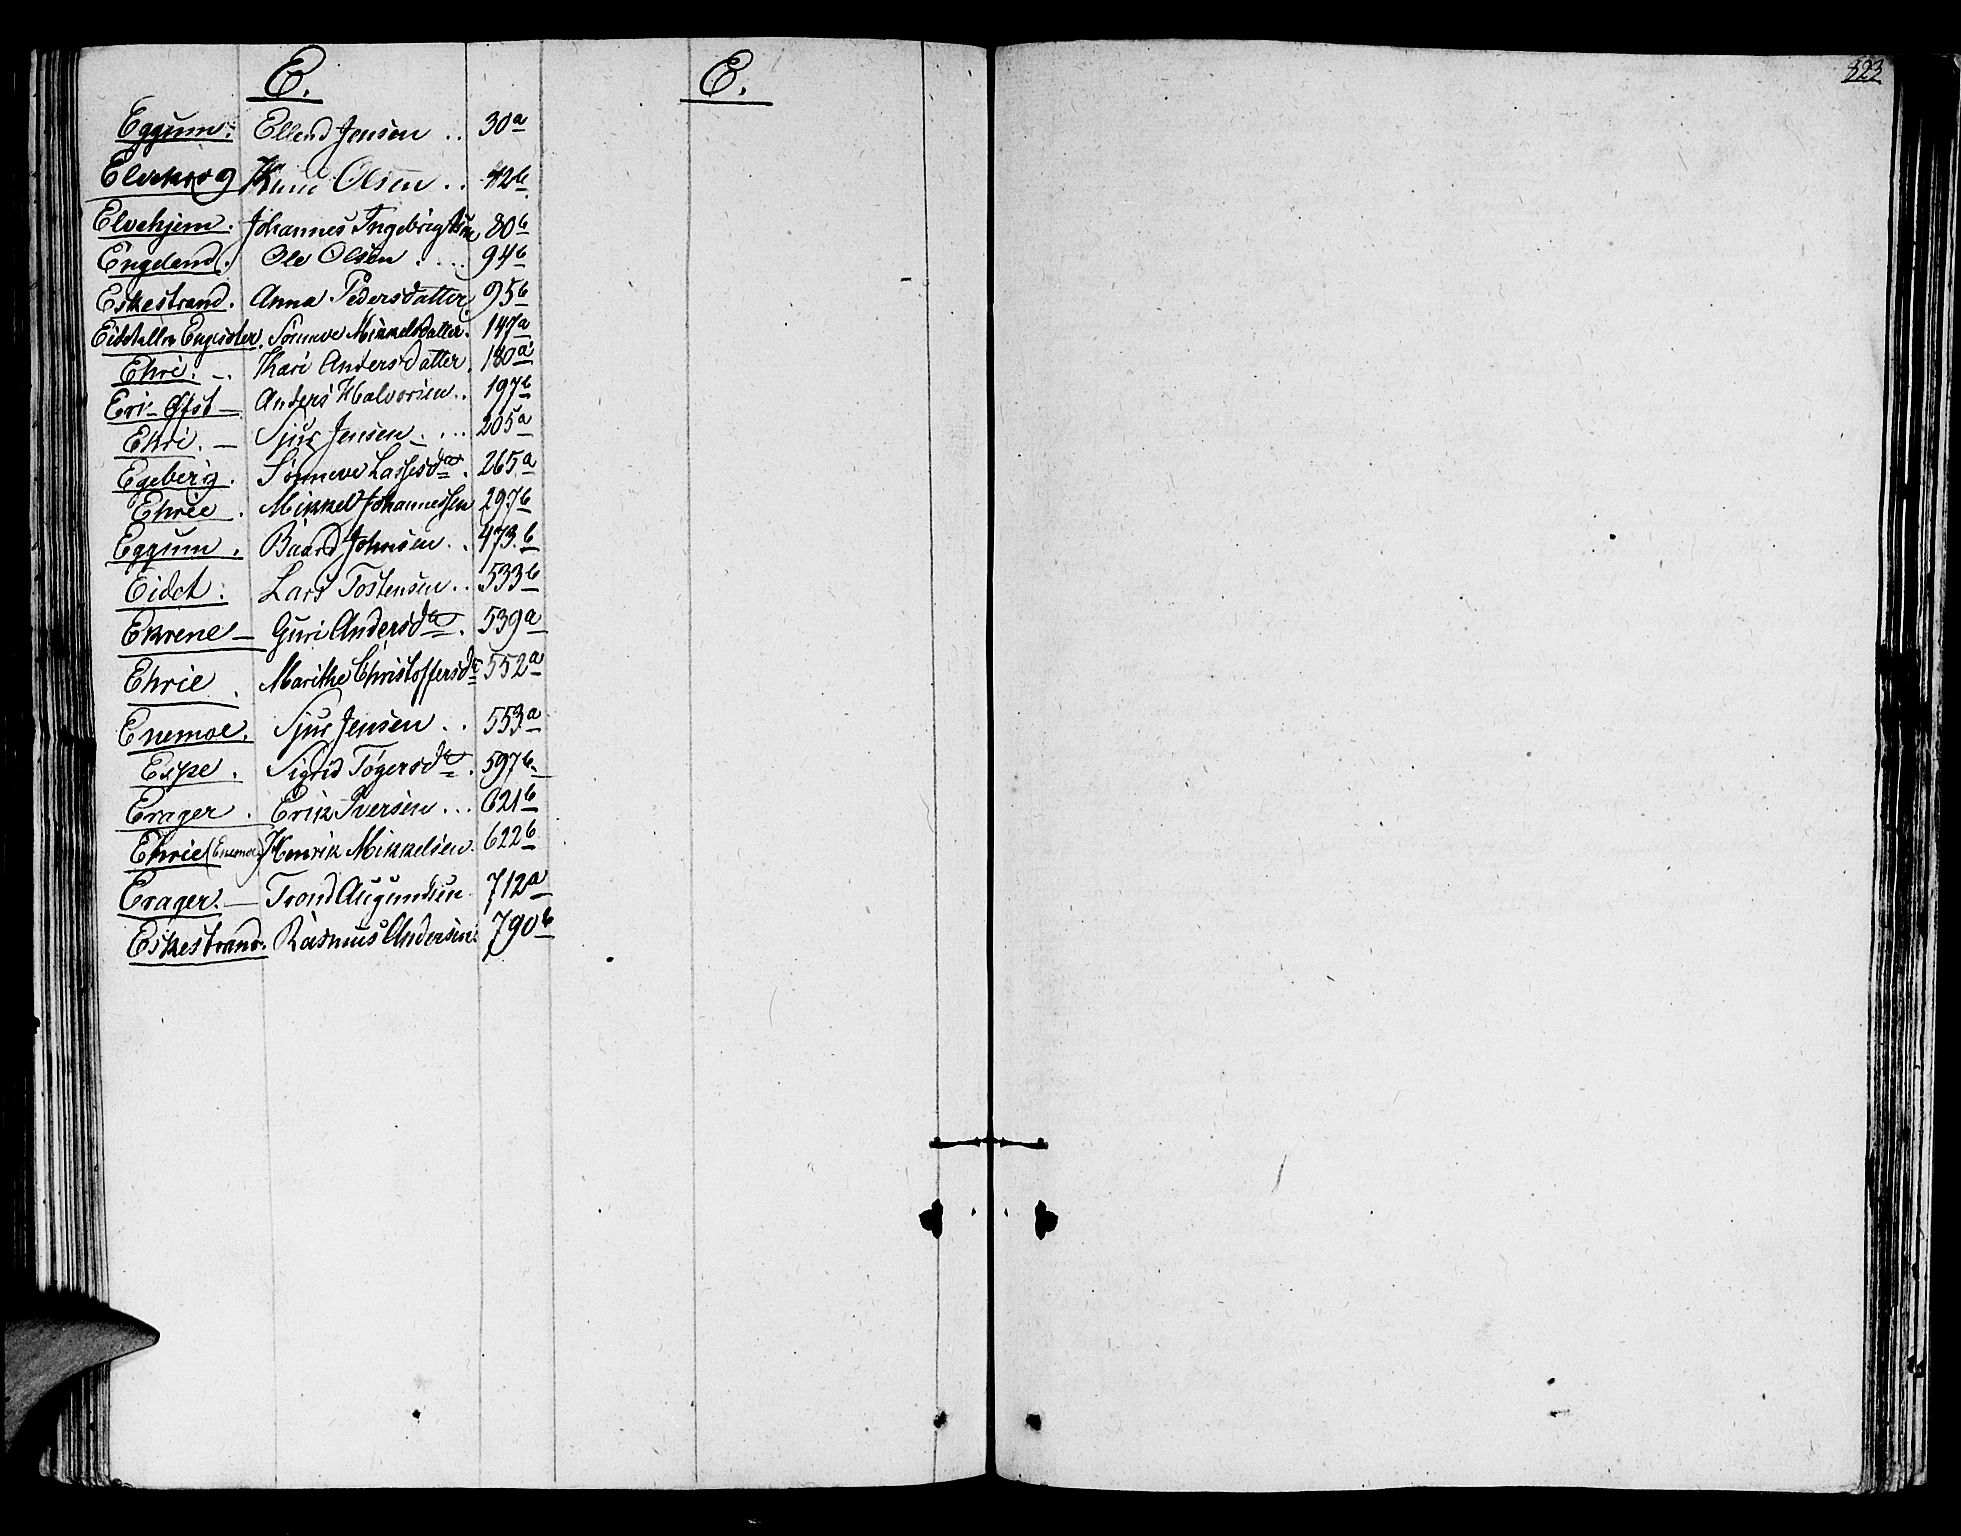 E.
E.
823
Eggum: Ellend Jensen .. 30a
Elvekrog Knud Olsen .. 42b
Elvehjem. Johannes Ingebrigtsen 80b
Engeland. Ole Olsen . ... 94b
Eskestrand. Anna Pedersdatter 95b
Eidet eller Sønneve Mikkelsdatter. 147a
Ehri. -. Kari Andersdatter. 180a
Eri-Øfst- Anders Halvorsen.. 197b
Ehri. - Sjur Jensen. ... 205a
Egeberg. Sønneve Lassesda. 265a
Ehrie . Mikkel Johannessen 297b
Eggum . Baard Johnsen . . 473.b
Eidet: Lars Tostensen.. 533b
Ekrene - Guri Andersda . 539a
Ehrie . Marithe Christoffersda 552a
Enemoe. Sjur Jensen .. 553a
Espe . Sigrid Tøgersda . 597b
Erager . Erik Iversen ... 621b
Ehrie (Enemoe) Henrik Mikkelsen. 622b
Erager. - Trond Augundsen 712a
Eskestrand. Rasmus Andersen. 790b